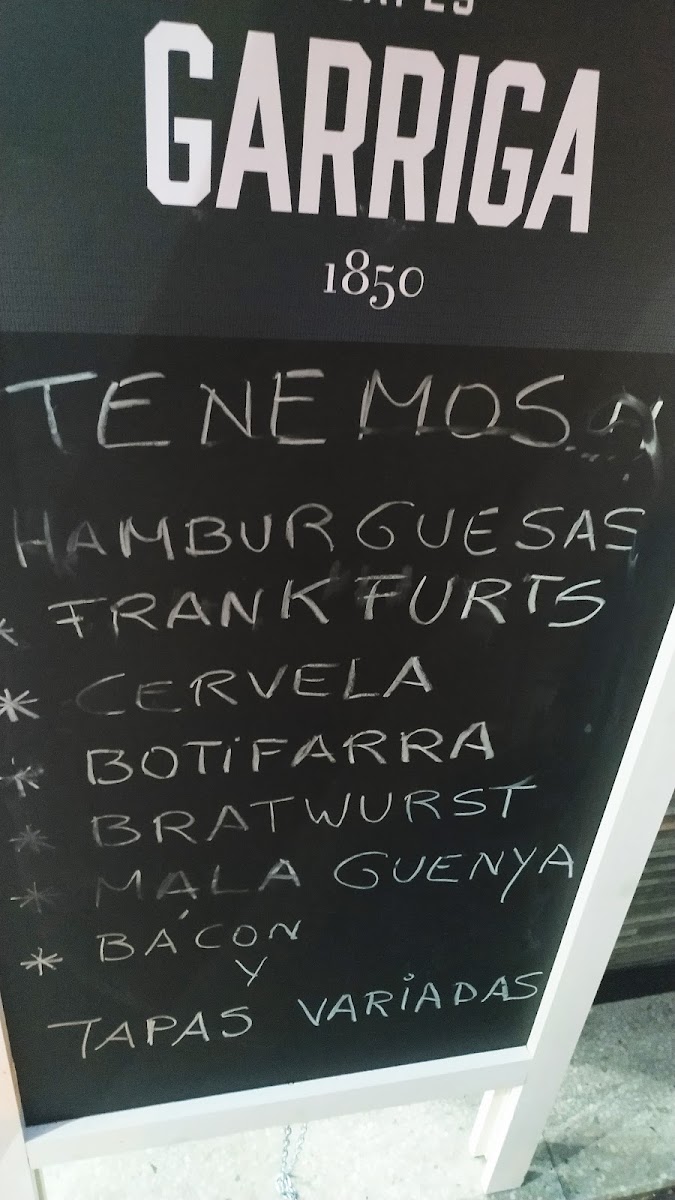 GARRIGA
1850
TENEMOS...
HAMBURGUESAS
* FRANKFURTS
* CERVELA
* BOTIFARRA
* BRATWURST
* MALAGUENYA
* BÁCON
Y
TAPAS VARIADAS